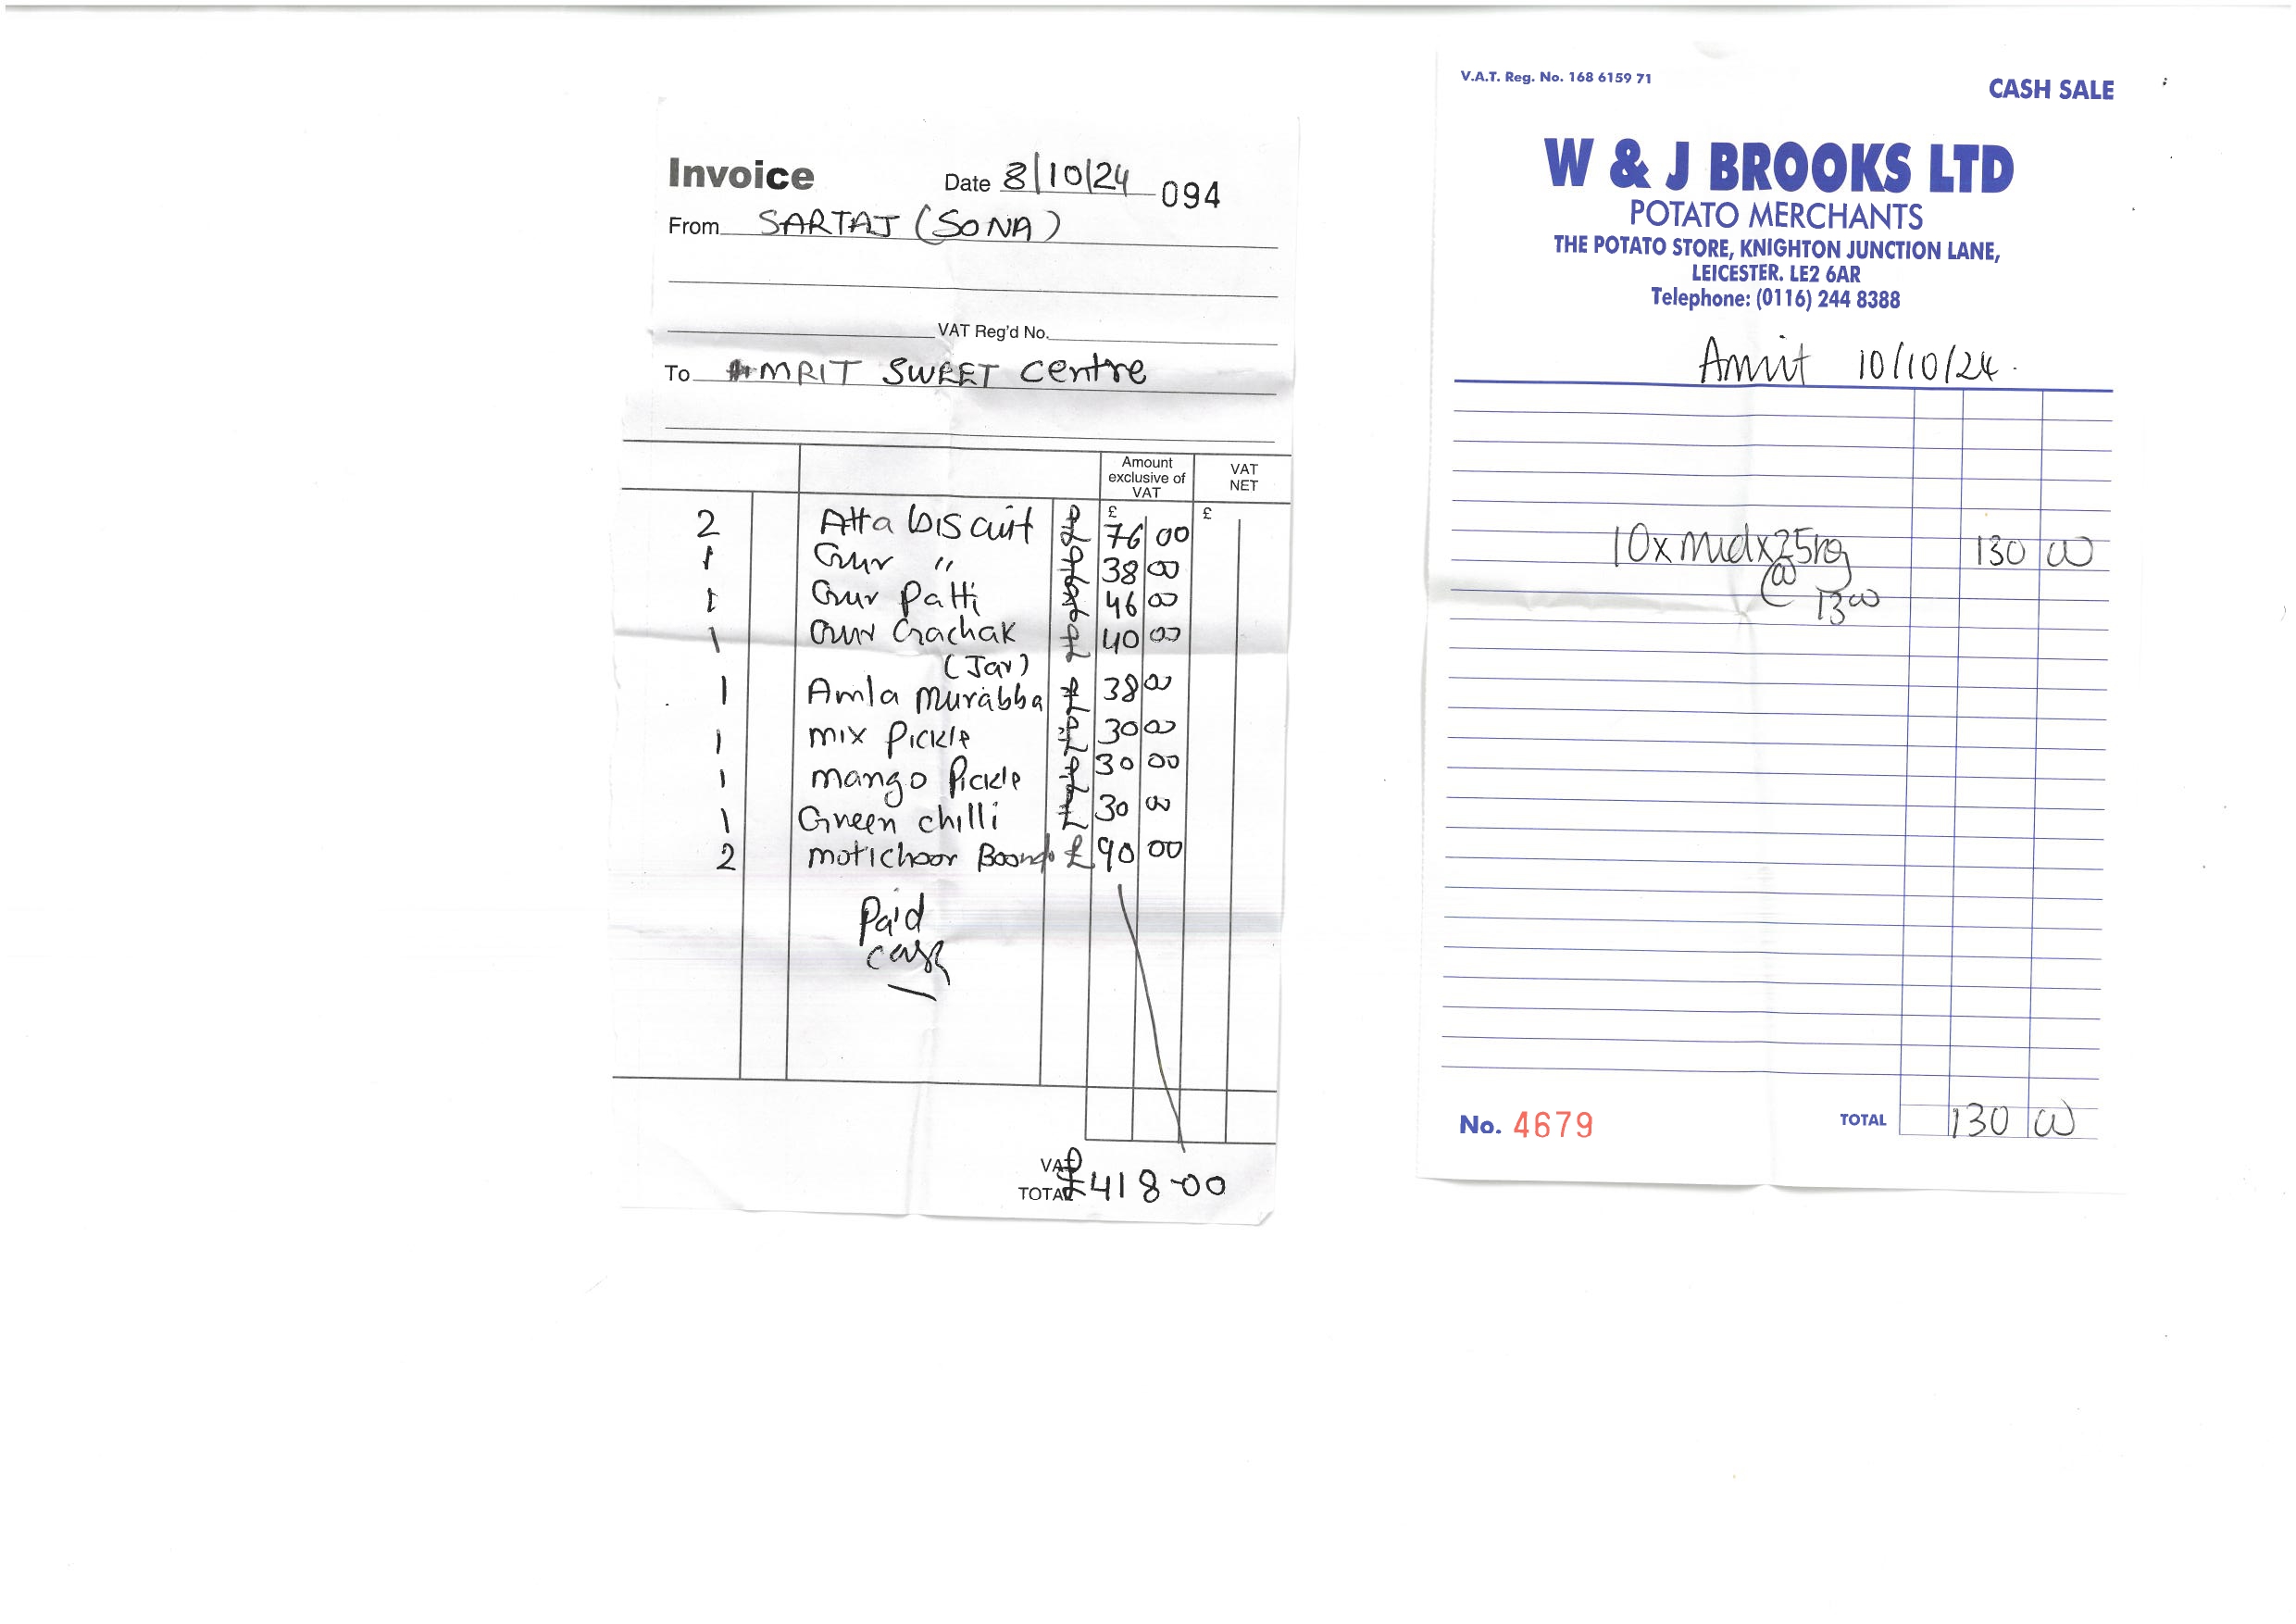 Invoice Date 8/10/24 094
From SARTAJ (SONA)
VAT Reg'd No.
To AMRIT SWEET Centre
Amount exclusive of VAT VAT NET
£ £
2 Atta biscuit £ 76 00
1 Gur " £ 38 00
1 Gur Patti £ 46 00
1 Gur Gachak £ 40 00
(Jar)
1 Amla Murabba £ 38 00
1 mix Pickle £ 30 00
1 mango Pickle £ 30 00
1 Green chilli £ 30 00
2 motichoor £ 90 00
Paid
cash
VAT
TOTAL £418-00
V.A.T. Reg. No. 168 6159 71
CASH SALE
W & J BROOKS LTD
POTATO MERCHANTS
THE POTATO STORE, KNIGHTON JUNCTION LANE,
LEICESTER. LE2 6AR
Telephone: (0116) 244 8388
Amrit 10/10/24.
10 x mid x 25kg 130 00
@ 13 00
No. 4679 TOTAL 130 00